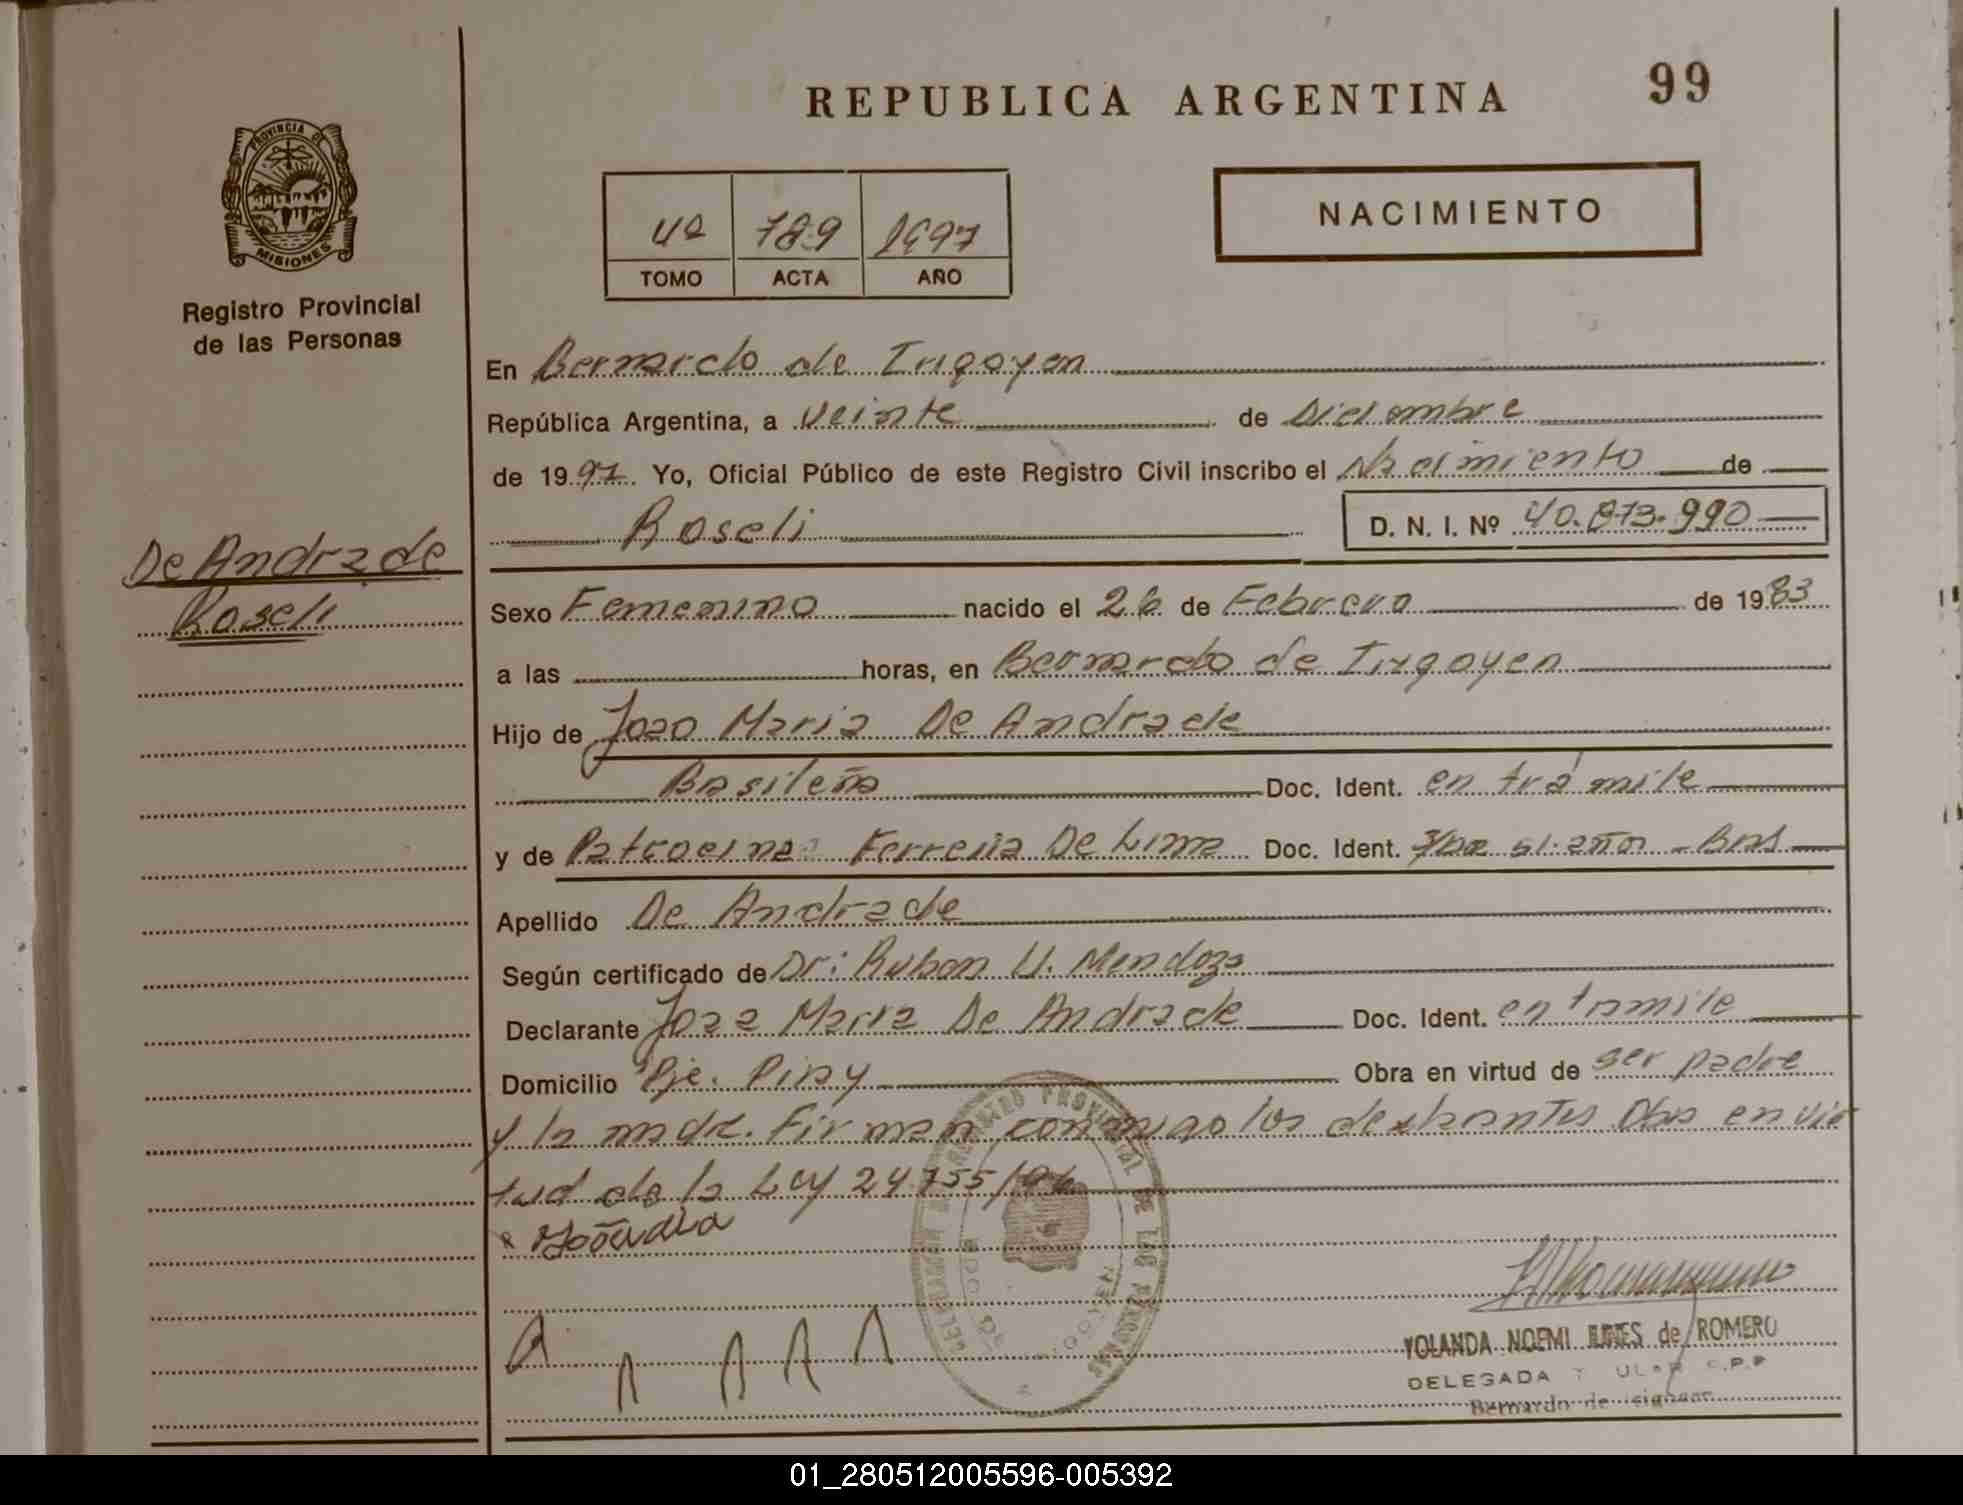 REPUBLICA ARGENTINA
99
PROVINCIA DE
MISIONES
Registro Provincial
de las Personas
4º 789 1997
TOMO ACTA AÑO
NACIMIENTO
En Bernardo de Irigoyen
República Argentina, a veinte de Diciembre
de 1997. Yo, Oficial Público de este Registro Civil inscribo el Nacimiento de
Roseli D. N. I. Nº 40.873.990
De Andrade
Roseli
Sexo Femenino nacido el 26 de Febrero de 1983
a las horas, en Bernardo de Irigoyen
Hijo de Joao Maria De Andrade
Brasileña Doc. Ident. en trámite
y de Ferreira De Lima Doc. Ident.
Apellido De Andrade
Según certificado de Dr: Ruben U. Mendoza
Declarante Joao Maria De Andrade Doc. Ident. en tramite
Domicilio Pje. Piray Obra en virtud de ser padre
y la madre. Firman conmigo los Obra en vir
tud de la Ley 24755/96
YOLANDA NOEMI de ROMERO
DELEGADA
Bernardo de
01_280512005596-005392